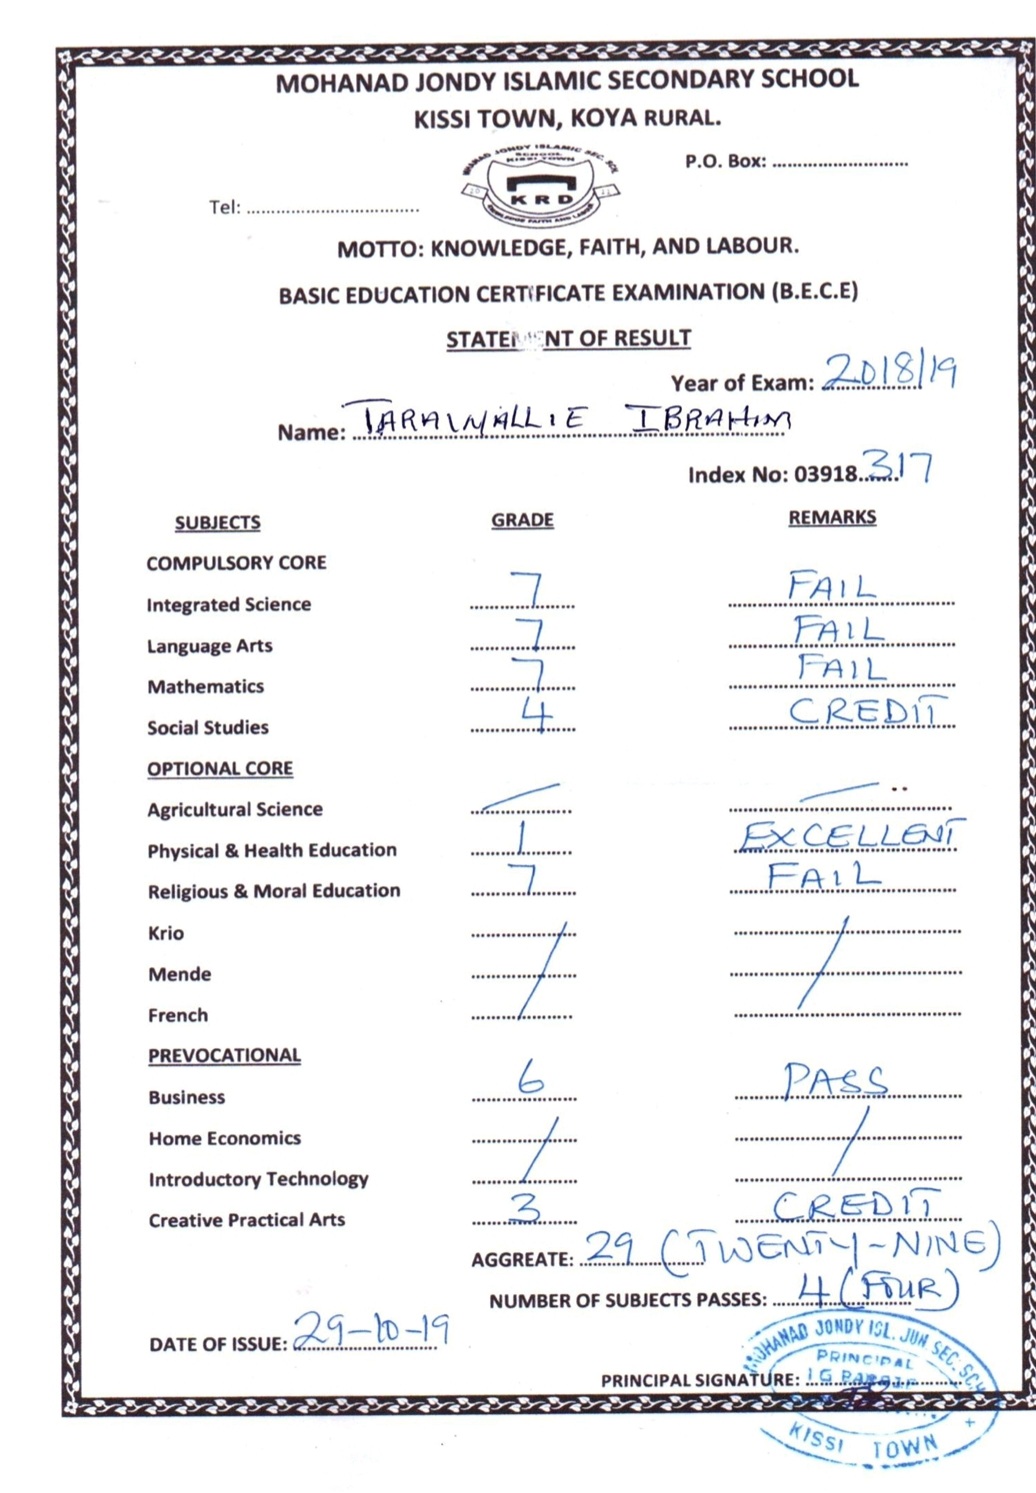 MOHANAD JONDY ISLAMIC SECONDARY SCHOOL
KISSI TOWN, KOYA RURAL.
P.O. Box: ..................................
MOHANAD JONDY ISLAMIC SEC. SCH.
SCHOOL
KISSI TOWN
KRD
KNOWLEDGE FAITH AND LABOUR
Tel: ..................................
MOTTO: KNOWLEDGE, FAITH, AND LABOUR.
BASIC EDUCATION CERTIFICATE EXAMINATION (B.E.C.E)
STATEMENT OF RESULT
Year of Exam: 2018/19
Name: TARAWALLIE IBRAHIM
Index No: 03918 317
SUBJECTS GRADE REMARKS
COMPULSORY CORE
Integrated Science 7 FAIL
Language Arts 7 FAIL
Mathematics 7 FAIL
Social Studies 4 CREDIT
OPTIONAL CORE
Agricultural Science
Physical & Health Education 1 EXCELLENT
Religious & Moral Education 7 FAIL
Krio
Mende
French
PREVOCATIONAL
Business 6 PASS
Home Economics
Introductory Technology
Creative Practical Arts 3 CREDIT
AGGREATE: 29 (TWENTY-NINE)
NUMBER OF SUBJECTS PASSES: 4 (FOUR)
DATE OF ISSUE: 29-10-19
PRINCIPAL SIGNATURE:
MOHANAD JONDY ISL. JUN SEC. SCH
PRINCIPAL
KISSI TOWN